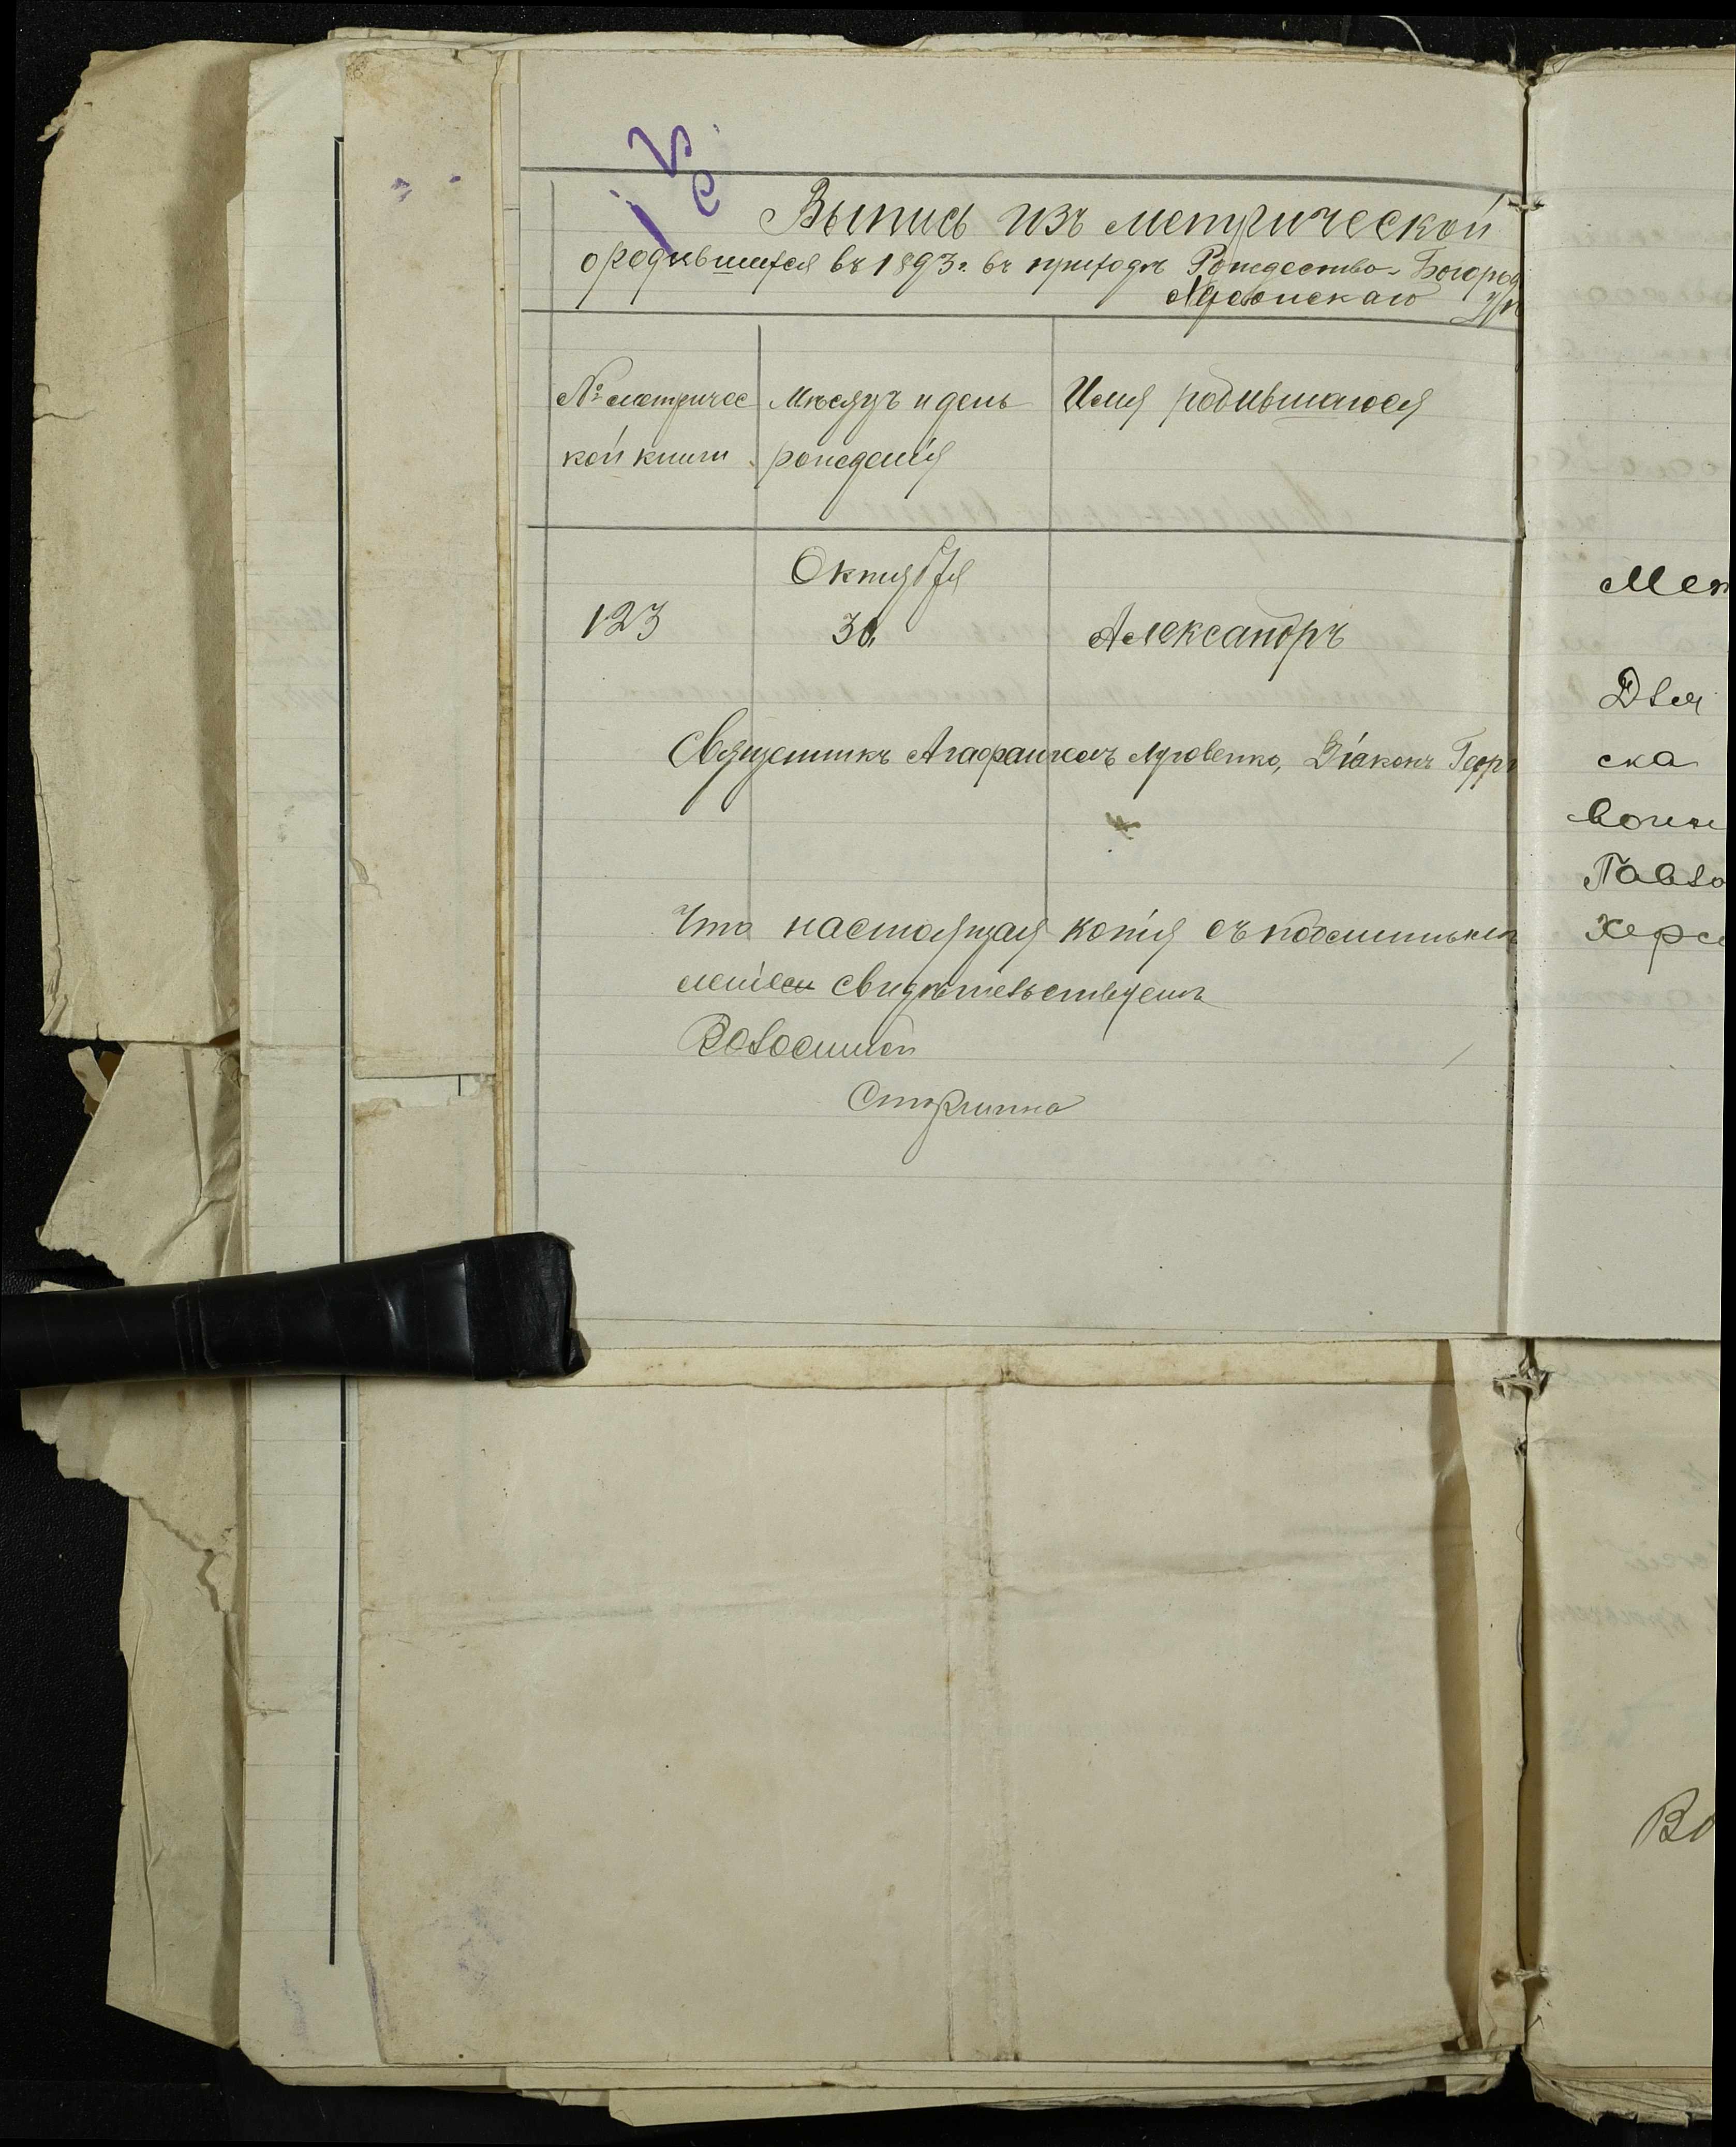 Выпись изъ метрической
о родившихся въ 1893 г. въ приходѣ Рождество-Богород
№ метричес
кой книги
Мѣсяцъ и день
рожденія
Имя родившагося
Октября
123
30
Александръ
Священникъ Агафангелъ Луговенко, Діаконъ Георг
Что настоящая копія съ подлиннымъ
свидѣтельствуемъ
Волостной
Старшина
Мет
Для
ска
воин
Павло
Херс
Во